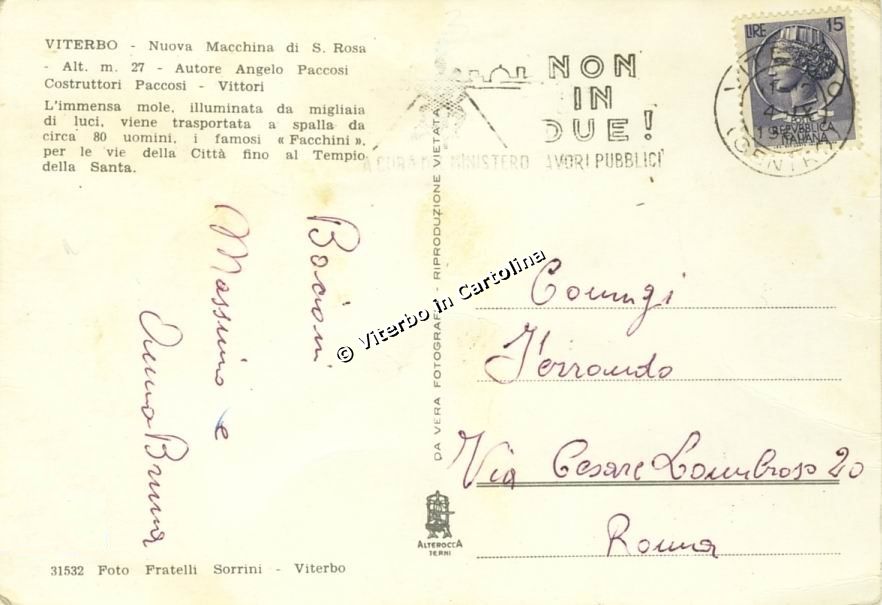 VITERBO - Nuova Macchina di S. Rosa
- Alt. m. 27 - Autore Angelo Paccosi
Costruttori Paccosi - Vittori
L'immensa mole, illuminata da migliaia
di luci, viene trasportata a spalla da
circa 80 uomini, i famosi « Facchini »,
per le vie della Città fino al Tempio
della Santa.
NON
IN
DUE!
A CURA MINISTERO LAVORI PUBBLICI
LIRE 15
REPVBBLICA
ITALIANA
4 IX
(CENTRO)
Bacioni
Massimo e
Anna Bruna
DA VERA FOTOGRAFIA - RIPRODUZIONE VIETATA
© Viterbo in Cartolina
Ferrando
Via Cesare Lombroso 20
Roma
ALTEROCCA
TERNI
31532 Foto Fratelli Sorrini - Viterbo